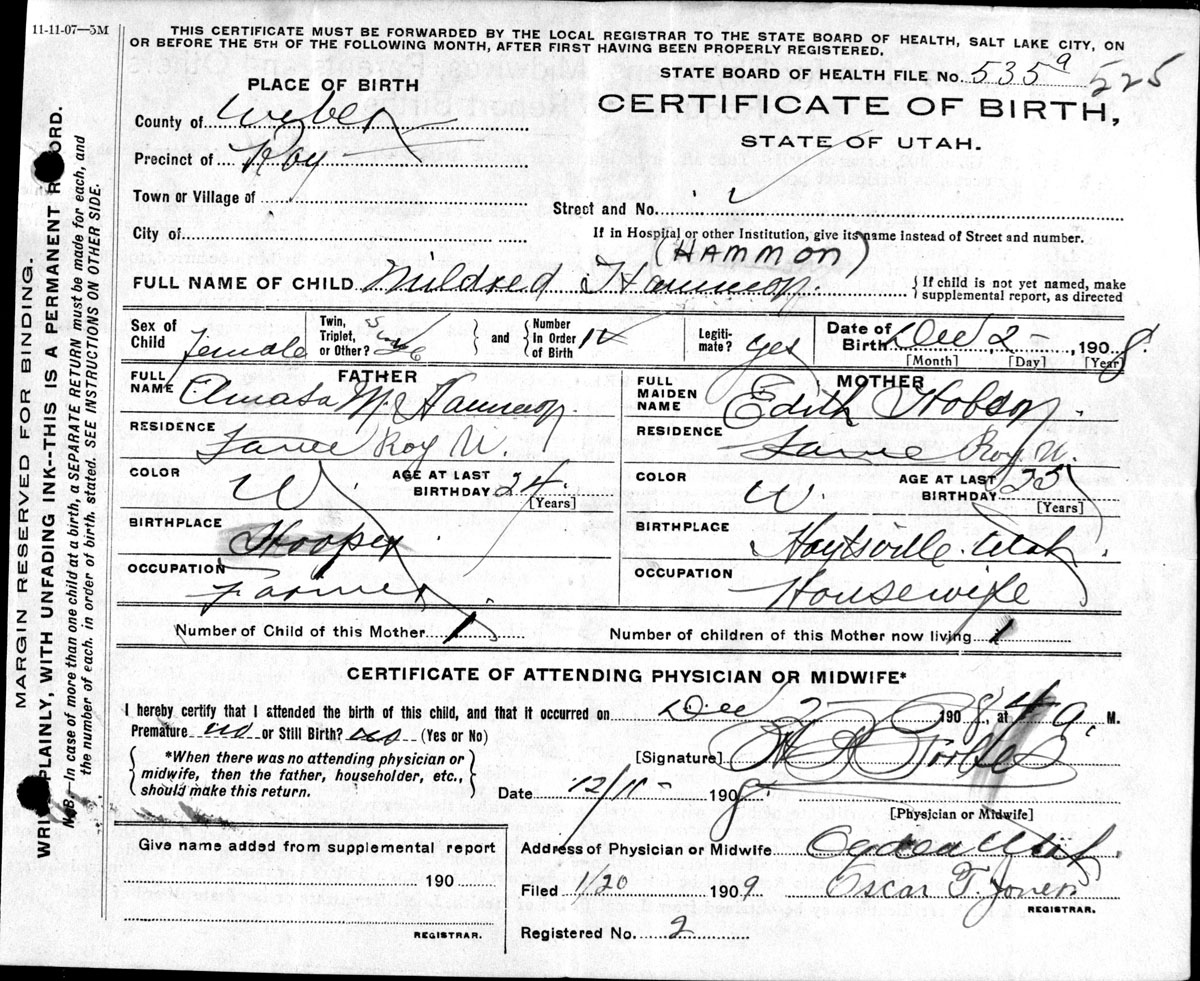 11-11-07—5M
THIS CERTIFICATE MUST BE FORWARDED BY THE LOCAL REGISTRAR TO THE STATE BOARD OF HEALTH, SALT LAKE CITY, ON
OR BEFORE THE 5TH OF THE FOLLOWING MONTH, AFTER FIRST HAVING BEEN PROPERLY REGISTERED.
STATE BOARD OF HEALTH FILE No. 535 a 525
PLACE OF BIRTH
CERTIFICATE OF BIRTH,
STATE OF UTAH.
County of Weber
Precinct of Roy
Town or Village of
Street and No.
City of
If in Hospital or other Institution, give its name instead of Street and number.
(HAMMON)
FULL NAME OF CHILD Mildred Hammon. { If child is not yet named, make
supplemental report, as directed
Sex of Child female
Twin, Triplet, or Other?
and { Number In Order of Birth
Legiti-mate? yes
Date of Birth Dec 2 - , 1908.
[Month] [Day] [Year]
FATHER
FULL NAME Amasa M. Hammon.
RESIDENCE Roy U.
COLOR W.
AGE AT LAST BIRTHDAY 24.
[Years]
BIRTHPLACE Hooper
OCCUPATION Farmer
MOTHER
FULL MAIDEN NAME Edith Hobson.
RESIDENCE Roy U.
COLOR W.
AGE AT LAST BIRTHDAY
[Years]
BIRTHPLACE Hoytsville Utah.
OCCUPATION Housewife
Number of Child of this Mother 1
Number of children of this Mother now living 1
CERTIFICATE OF ATTENDING PHYSICIAN OR MIDWIFE*
I hereby certify that I attended the birth of this child, and that it occurred on Dec 2- 1908, at 4 a. M.
Premature no or Still Birth? no (Yes or No)
[Signature]
{ *When there was no attending physician or
midwife, then the father, householder, etc.,
should make this return. }
Date 12/11 - 1908.
[Physician or Midwife]
Give name added from supplemental report
190
REGISTRAR.
Address of Physician or Midwife Ogden Utah
Filed 1/20 1909 Oscar T. Jones
REGISTRAR.
Registered No. 2
MARGIN RESERVED FOR BINDING.
PLAINLY, WITH UNFADING INK--THIS IS A PERMANENT R ORD.
N.B.—In case of more than one child at a birth, a SEPARATE RETURN must be made for each, and
the number of each, in order of birth, stated. SEE INSTRUCTIONS ON OTHER SIDE.